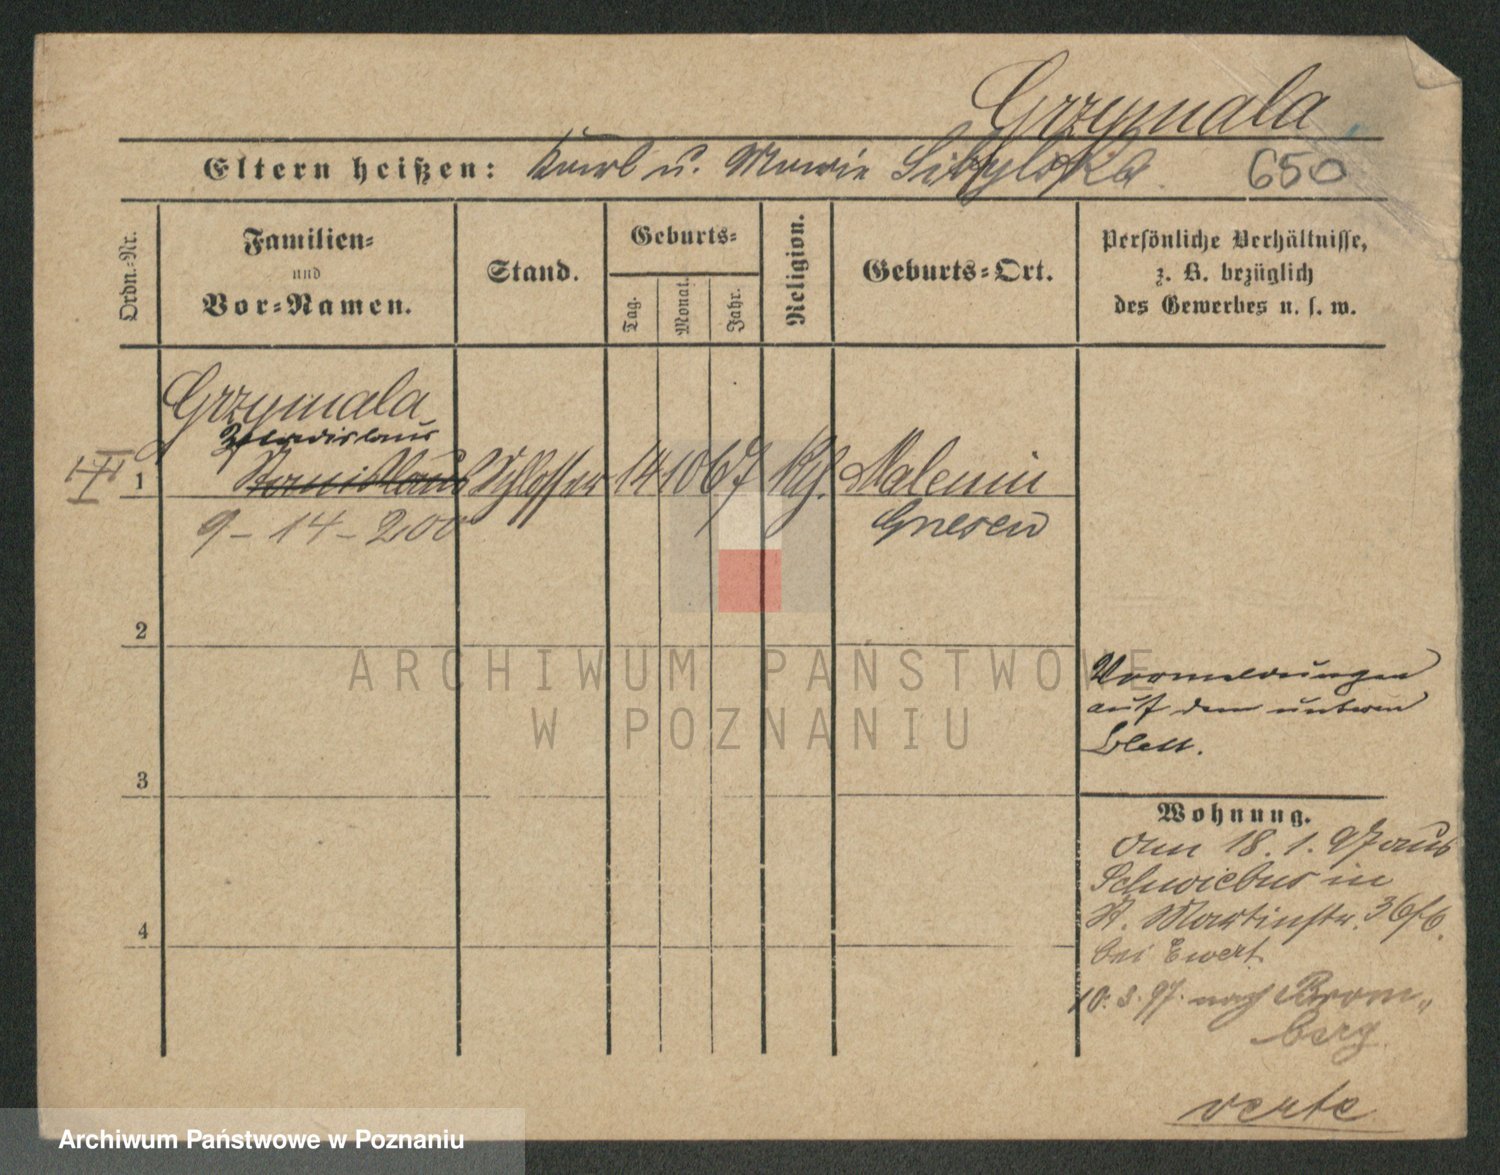 Grzymala
Eltern heißen: Karl u. Marie 650
Ordn.-Nr.
Familien-
und
Vor-Namen.
Stand.
Geburts-
Tag.
Monat.
Jahr.
Religion.
Geburts-Ort.
Persönliche Verhältnisse,
z. B. bezüglich
des Gewerbes u. s. w.
Grzymala
Wladislaus
1 Stanislaus Schlosser 14 10 67 Kth. Malenin
9 - 14 - 200 Gnesen
2
Vormeldungen
auf dem unteren
Blatt.
3
Wohnung.
Am 18.1.97 aus
Schwiebus in
St. Martinstr. 36
bei Ewert
4
10.3.97. nach Brom-
berg
verte
ARCHIWUM PAŃSTWOWE
W POZNANIU
Archiwum Państwowe w Poznaniu